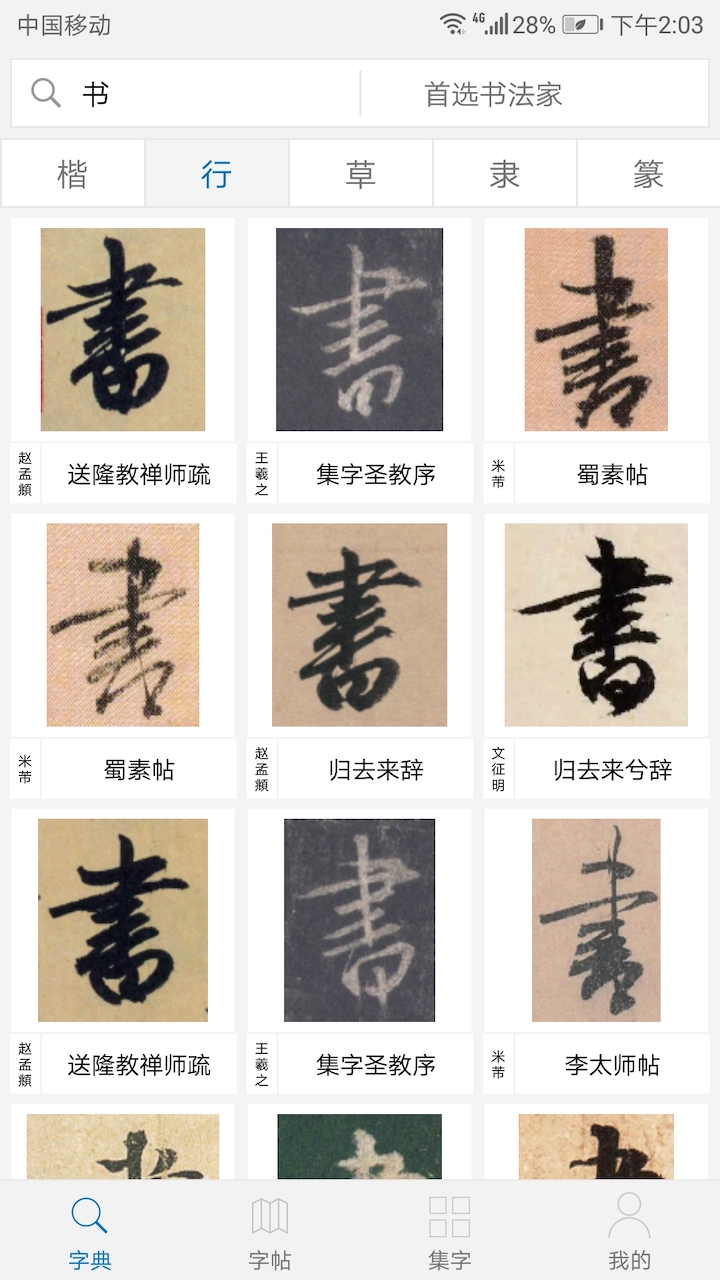 中国移动 4G 28% 下午2:03
书 首选书法家
楷 行 草 隶 篆
書 書 書
赵孟頫 送隆教禅师疏 王羲之 集字圣教序 米芾 蜀素帖
書 書 書
米芾 蜀素帖 赵孟頫 归去来辞 文征明 归去来兮辞
書 書 書
赵孟頫 送隆教禅师疏 王羲之 集字圣教序 米芾 李太师帖
字典 字帖 集字 我的